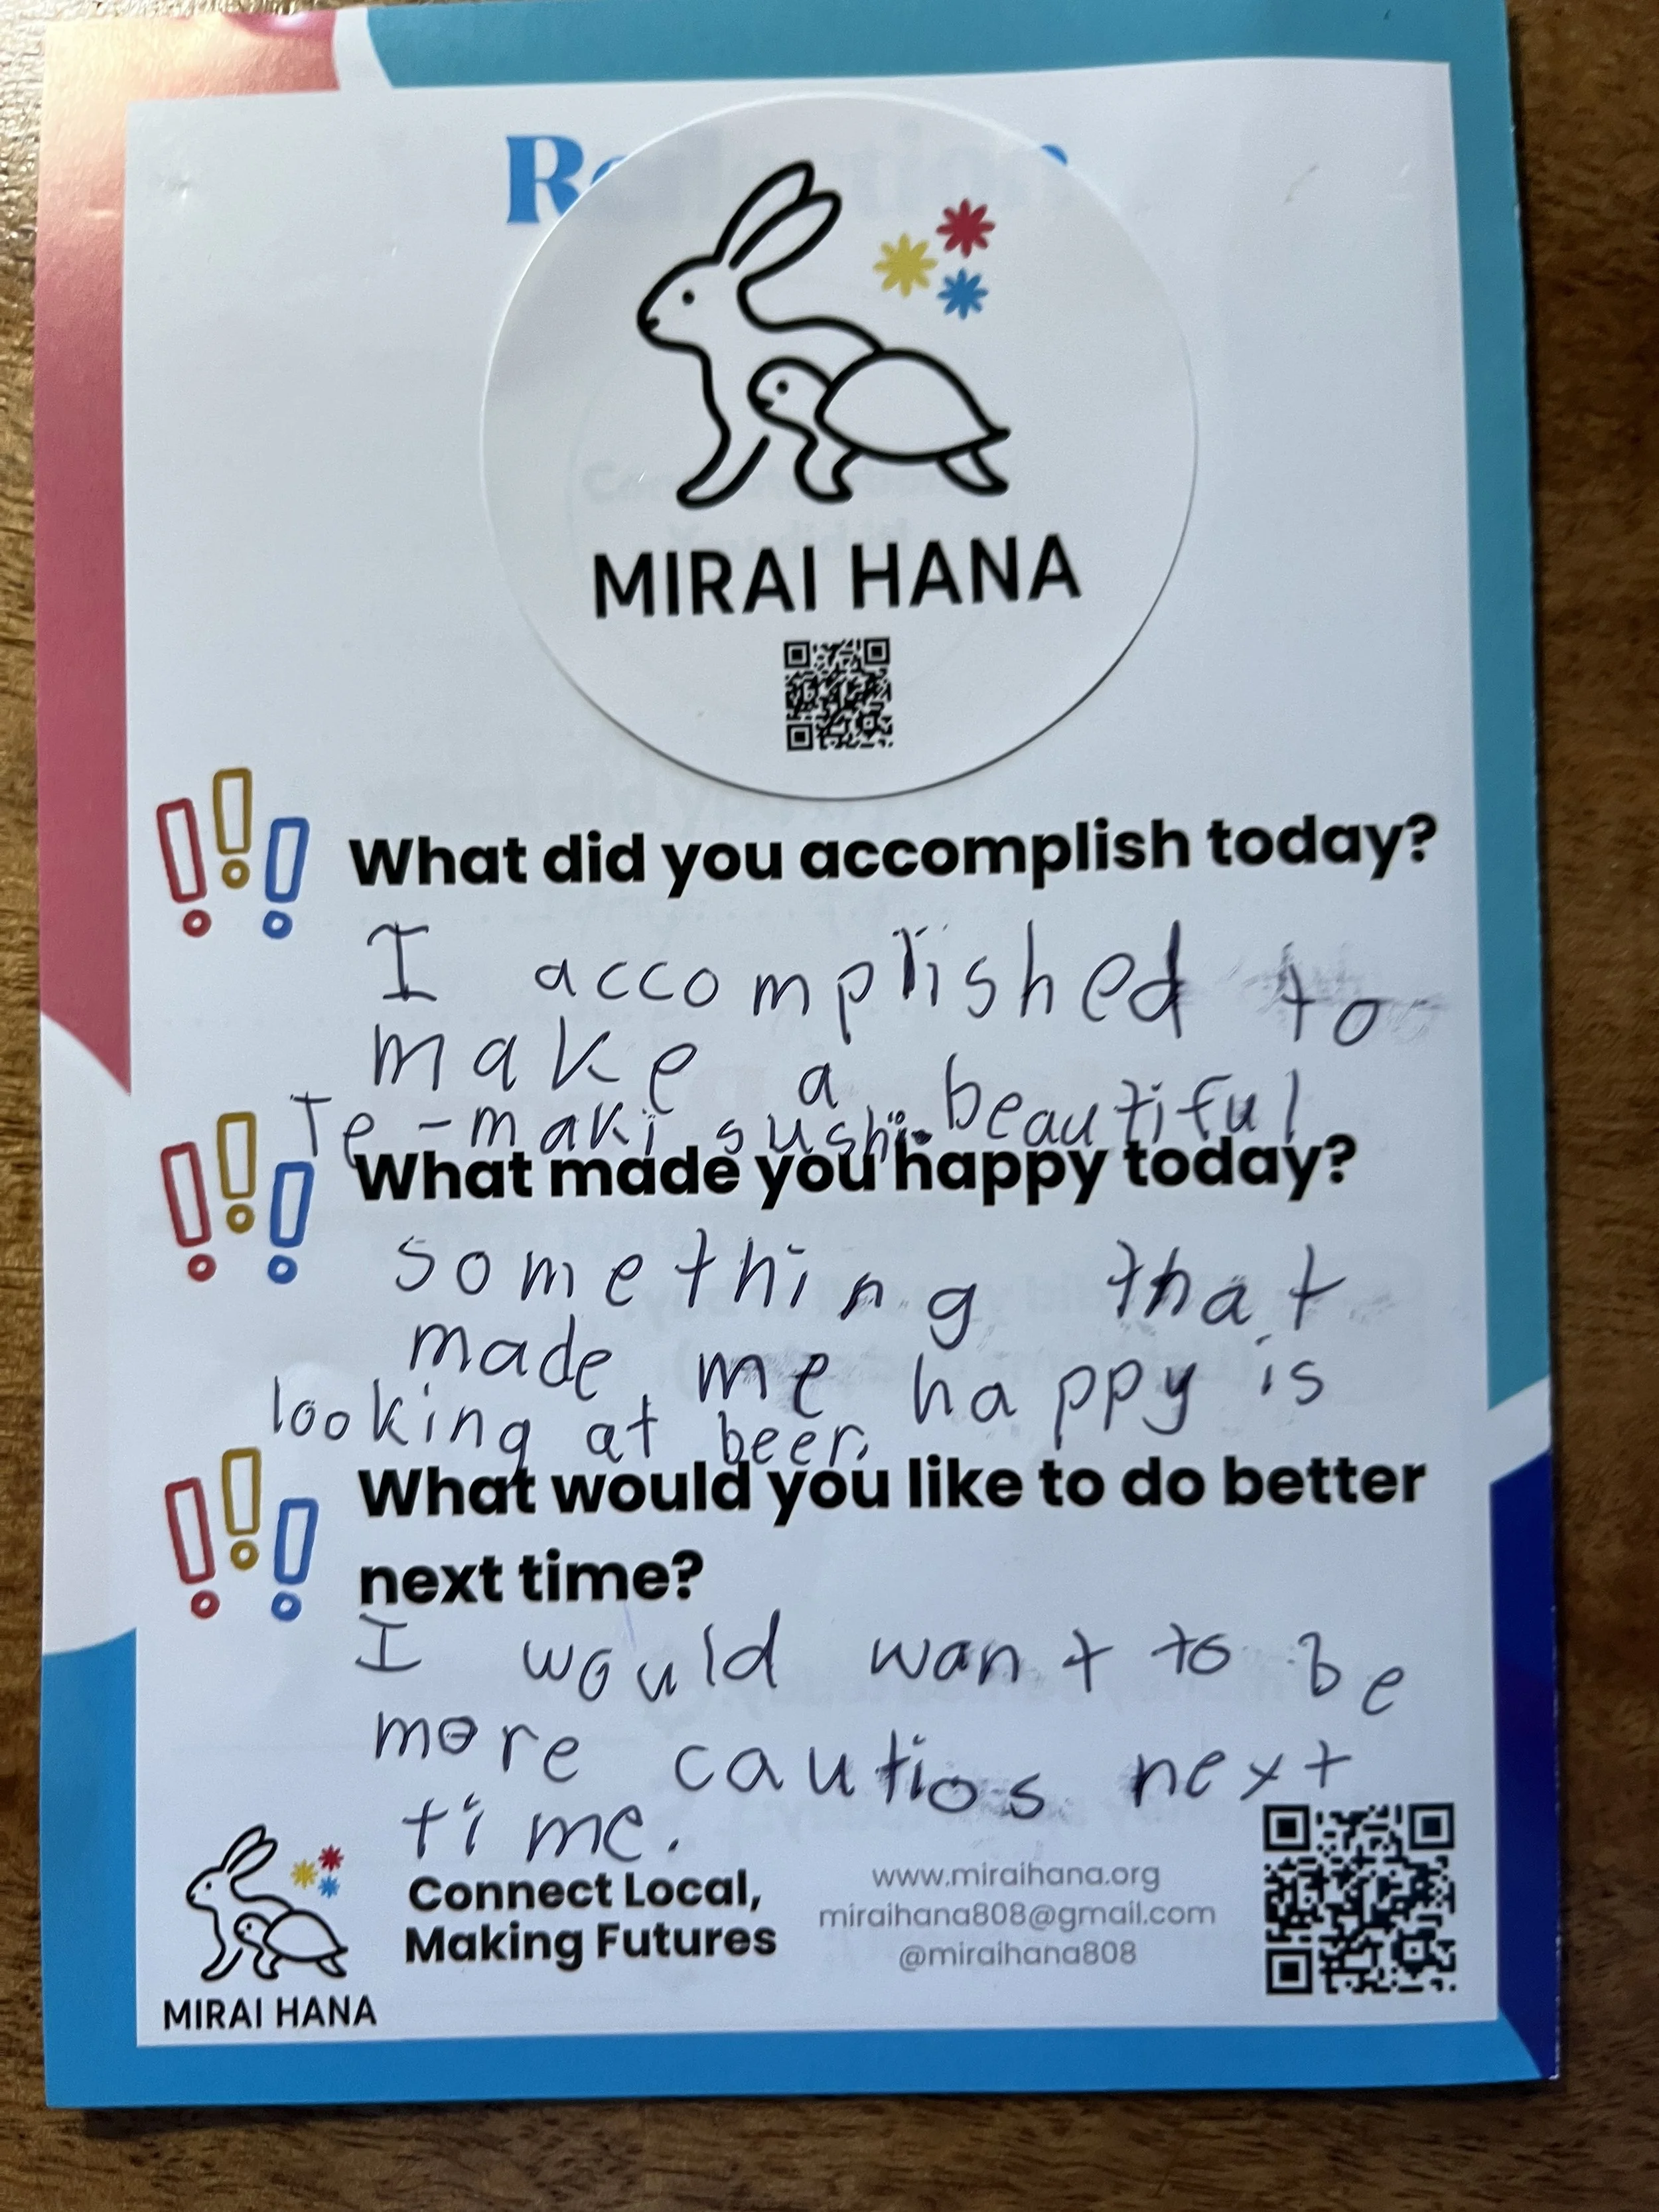 MIRAI HANA
What did you accomplish today?
I accomplished to
make a beautiful
Te-maki sushi.
What made you happy today?
something that
made me happy is
looking at beer.
What would you like to do better
next time?
I would want to be
more cautios next
time.
Connect Local,
Making Futures
MIRAI HANA
www.miraihana.org
miraihana808@gmail.com
@miraihana808